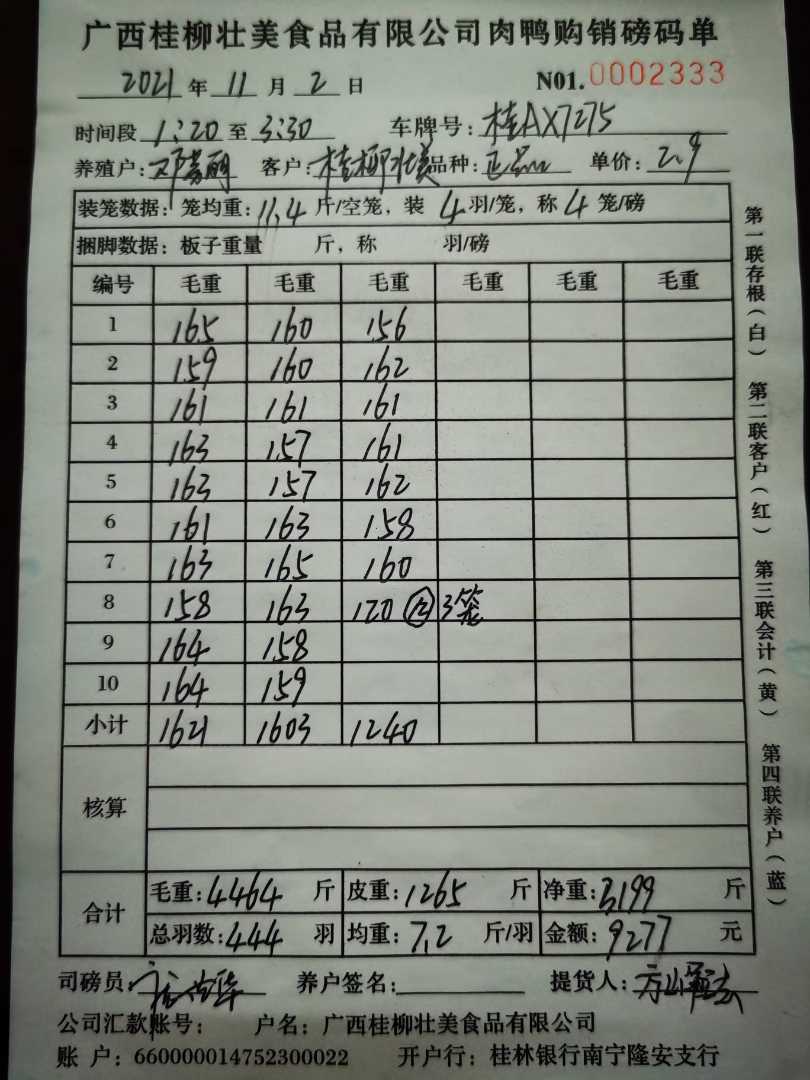 广西桂柳壮美食品有限公司肉鸭购销磅码单
2021年11月2日 N01.0002333
时间段1:20至3:30 车牌号:桂AX7275
养殖户: 客户:桂柳壮美品种:正品 单价:2.9
装笼数据:笼均重:11.4斤/空笼,装4羽/笼,称4笼/磅
捆脚数据:板子重量 斤,称 羽/磅
编号 毛重 毛重 毛重 毛重 毛重 毛重
1 165 160 156
2 159 160 162
3 161 161 161
4 163 157 161
5 163 157 162
6 161 163 158
7 163 165 160
8 158 163 120 3笼
9 164 158
10 164 159
小计 1621 1603 1240
核算
合计 毛重:4464斤 皮重:1265斤 净重:3199斤
总羽数:444羽 均重:7.2斤/羽 金额:9277元
司磅员: 养户签名: 提货人:
公司汇款账号: 户名:广西桂柳壮美食品有限公司
账户:660000014752300022 开户行:桂林银行南宁隆安支行
第一联存根(白)
第二联客户(红)
第三联会计(黄)
第四联养户(蓝)